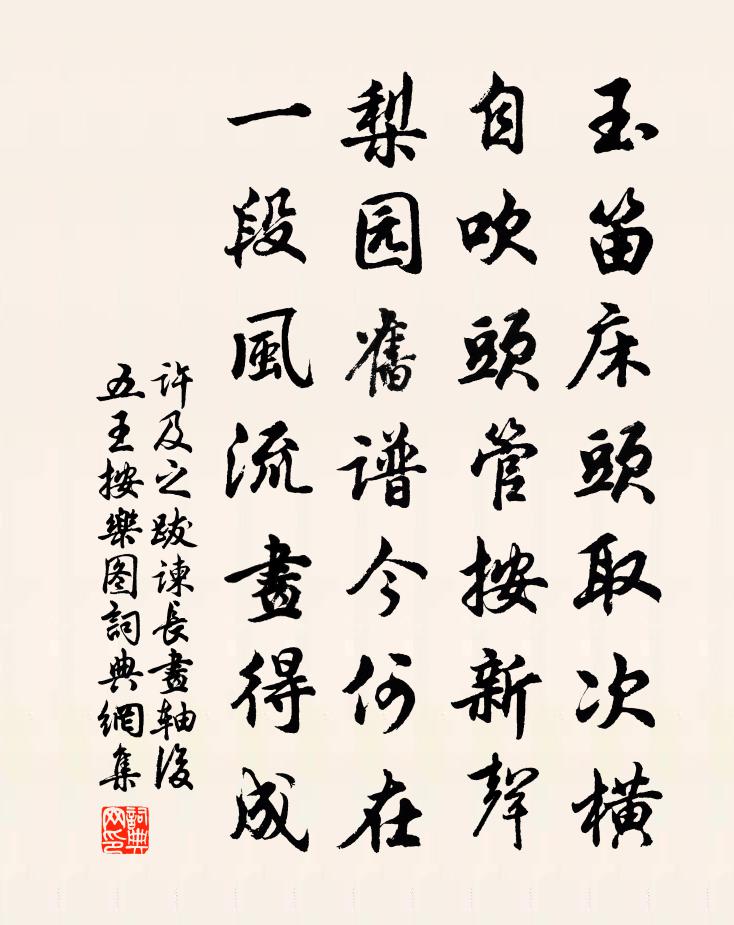 玉笛床頭取次横
自吹頭管按新聲
梨园舊谱今何在
一段風流畫得成
許及之跋諫長畫軸後
五王按樂图詞典網集
詞典
网印